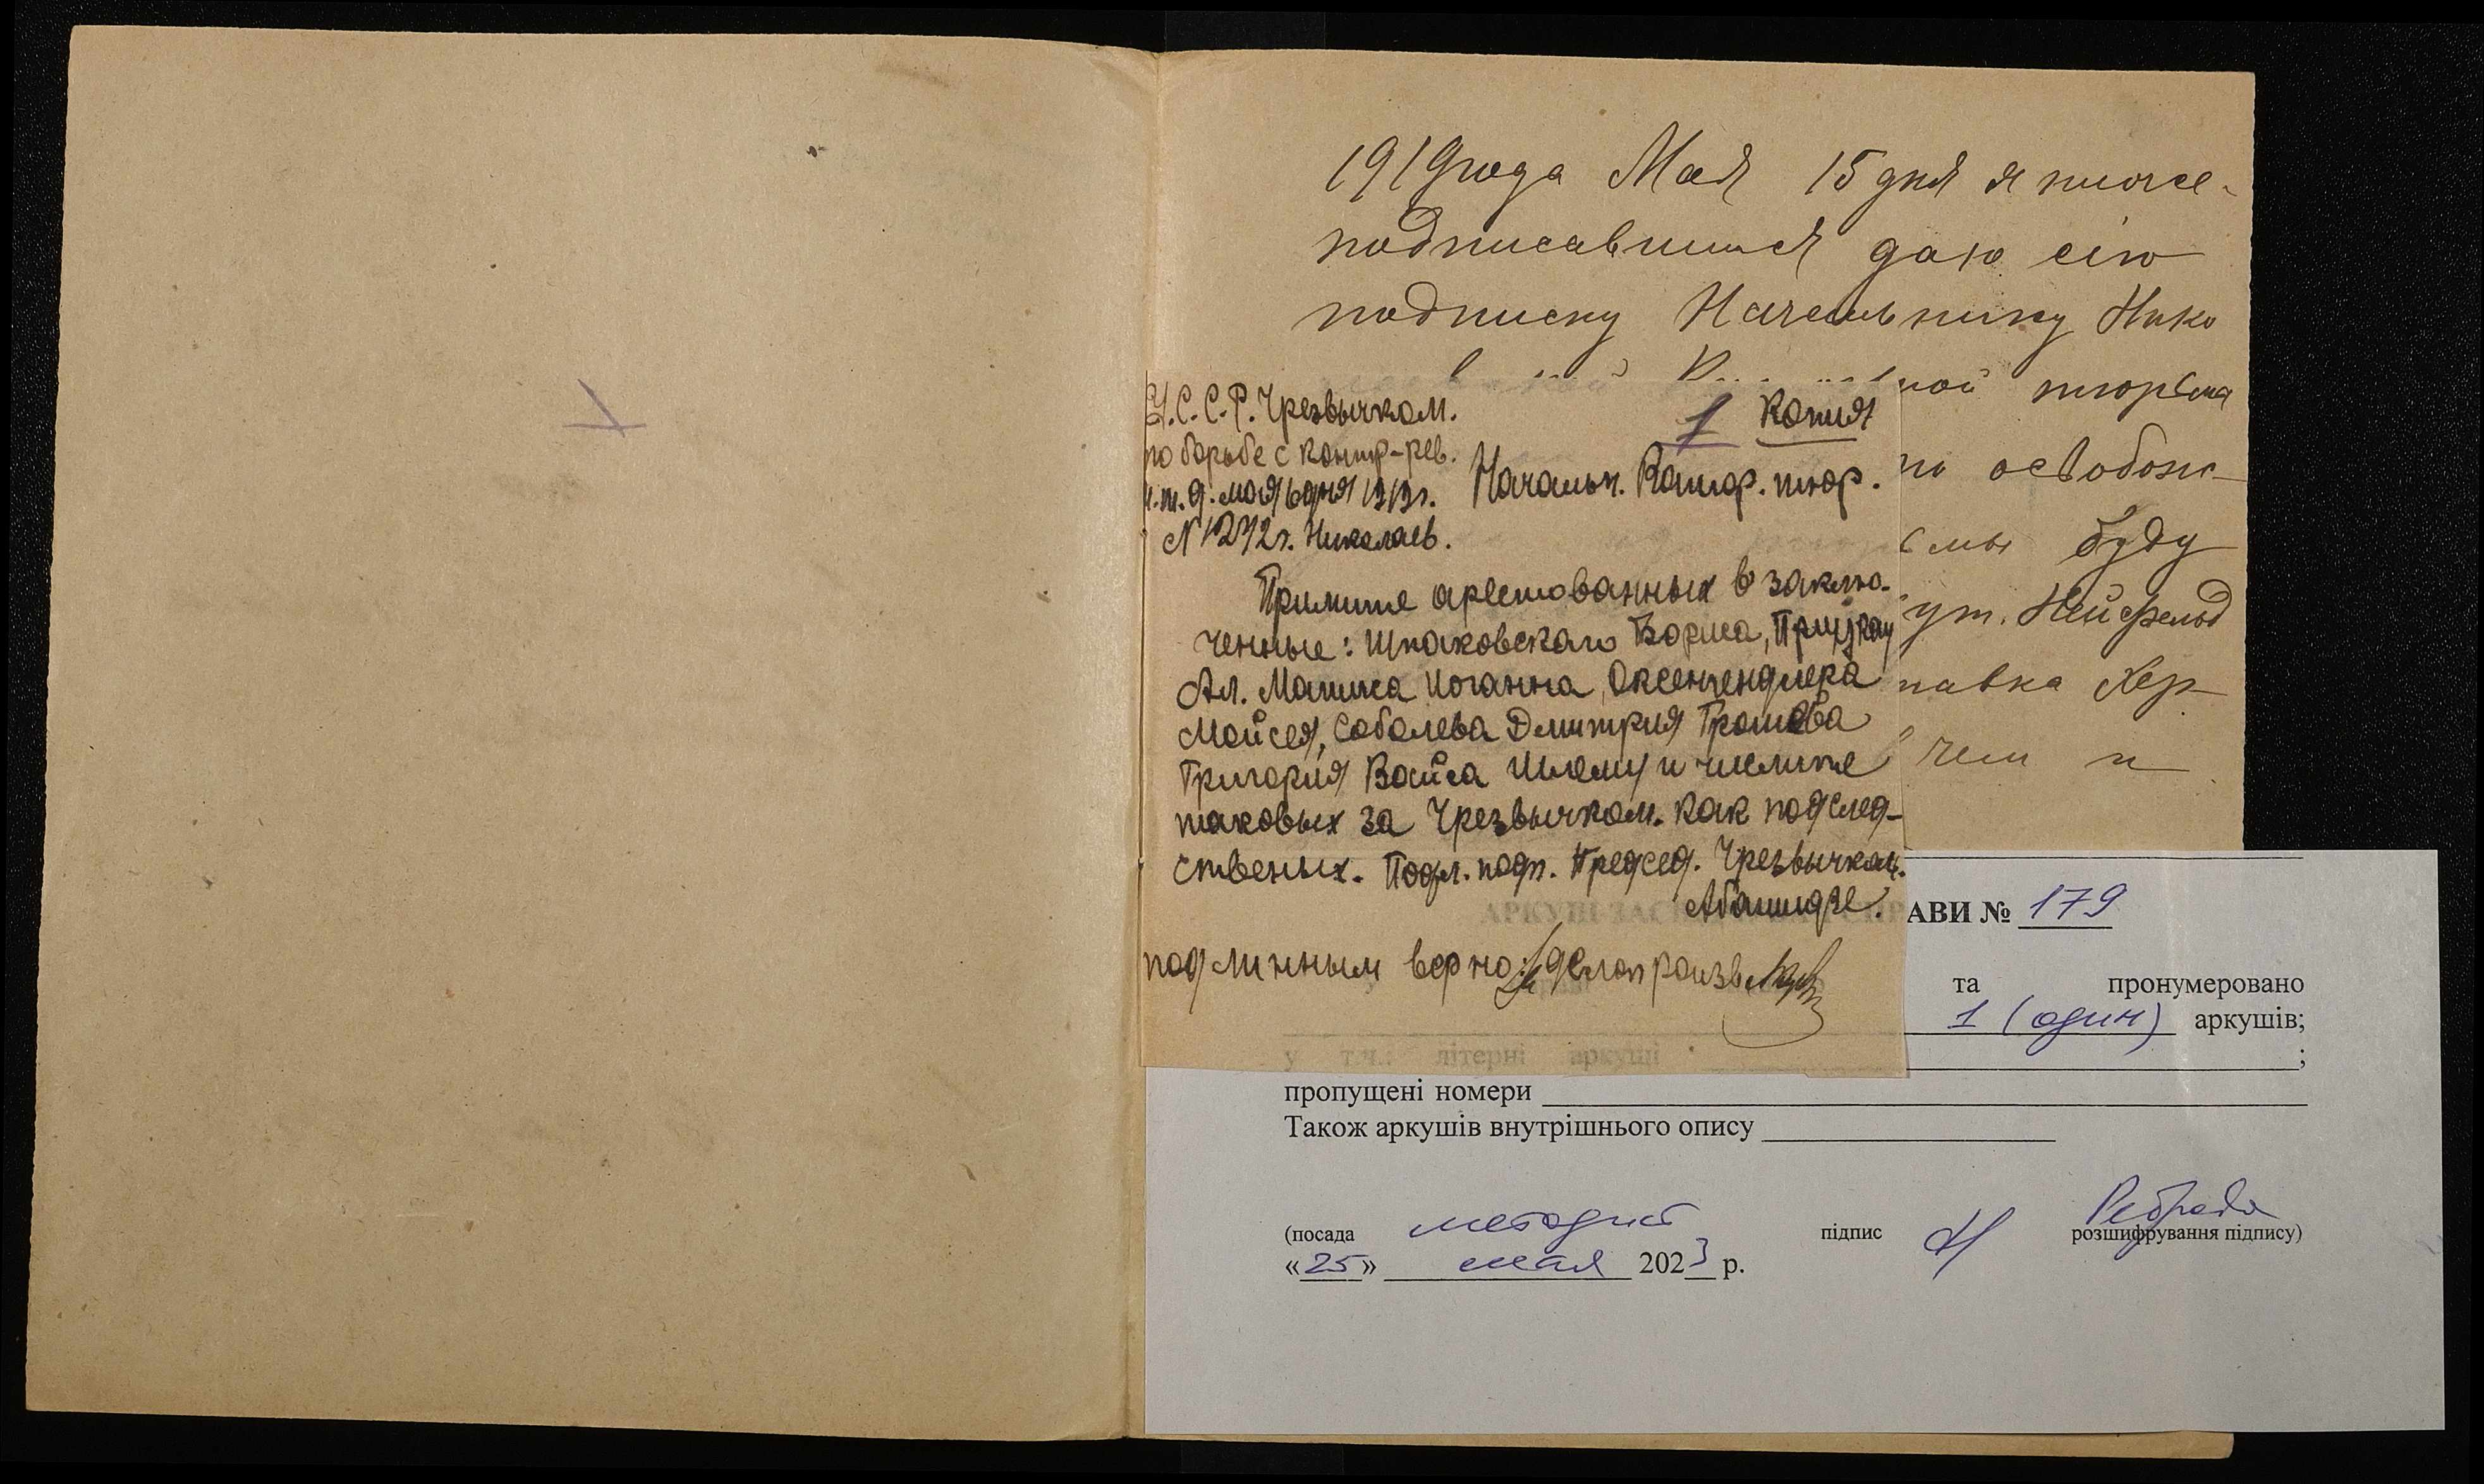 1919 года Мая 15 дня я ниже-
подписавшийся даю сію
подписку Начальнику Нико
ной тюрьма
но освобож-
буду
ут. Нейфельд
павка Хер-
чем и
У.С.С.Р. Чрезвычком.
по борьбе с контр-рев.
и.т.д. мая 6 дня 1919 г.
№ 1272 г. Николаев.
1 Копия
Начальн. Катор. тюр.
Примите арестованных в заклю-
ченные: Шпаковскаго Бориса,
Ал. Иоганна, Оксенгендлера
Мойсея, Соболева Дмитрия Громова
Григория Вайса Шлему и числите
таковых за Чрезвычком. как подслед-
ственых. Подл. подп. Председ. Чрезвычком.
Абашидзе.
подлинным верно: делопроизв
АРКУШ ЗАС АВИ № 179
та пронумеровано
1 (один) аркушів;
у т.ч.: літерні аркуші ;
пропущені номери
Також аркушів внутрішнього опису
(посада методист підпис розшифрування підпису)
«25» мая 2023 р.